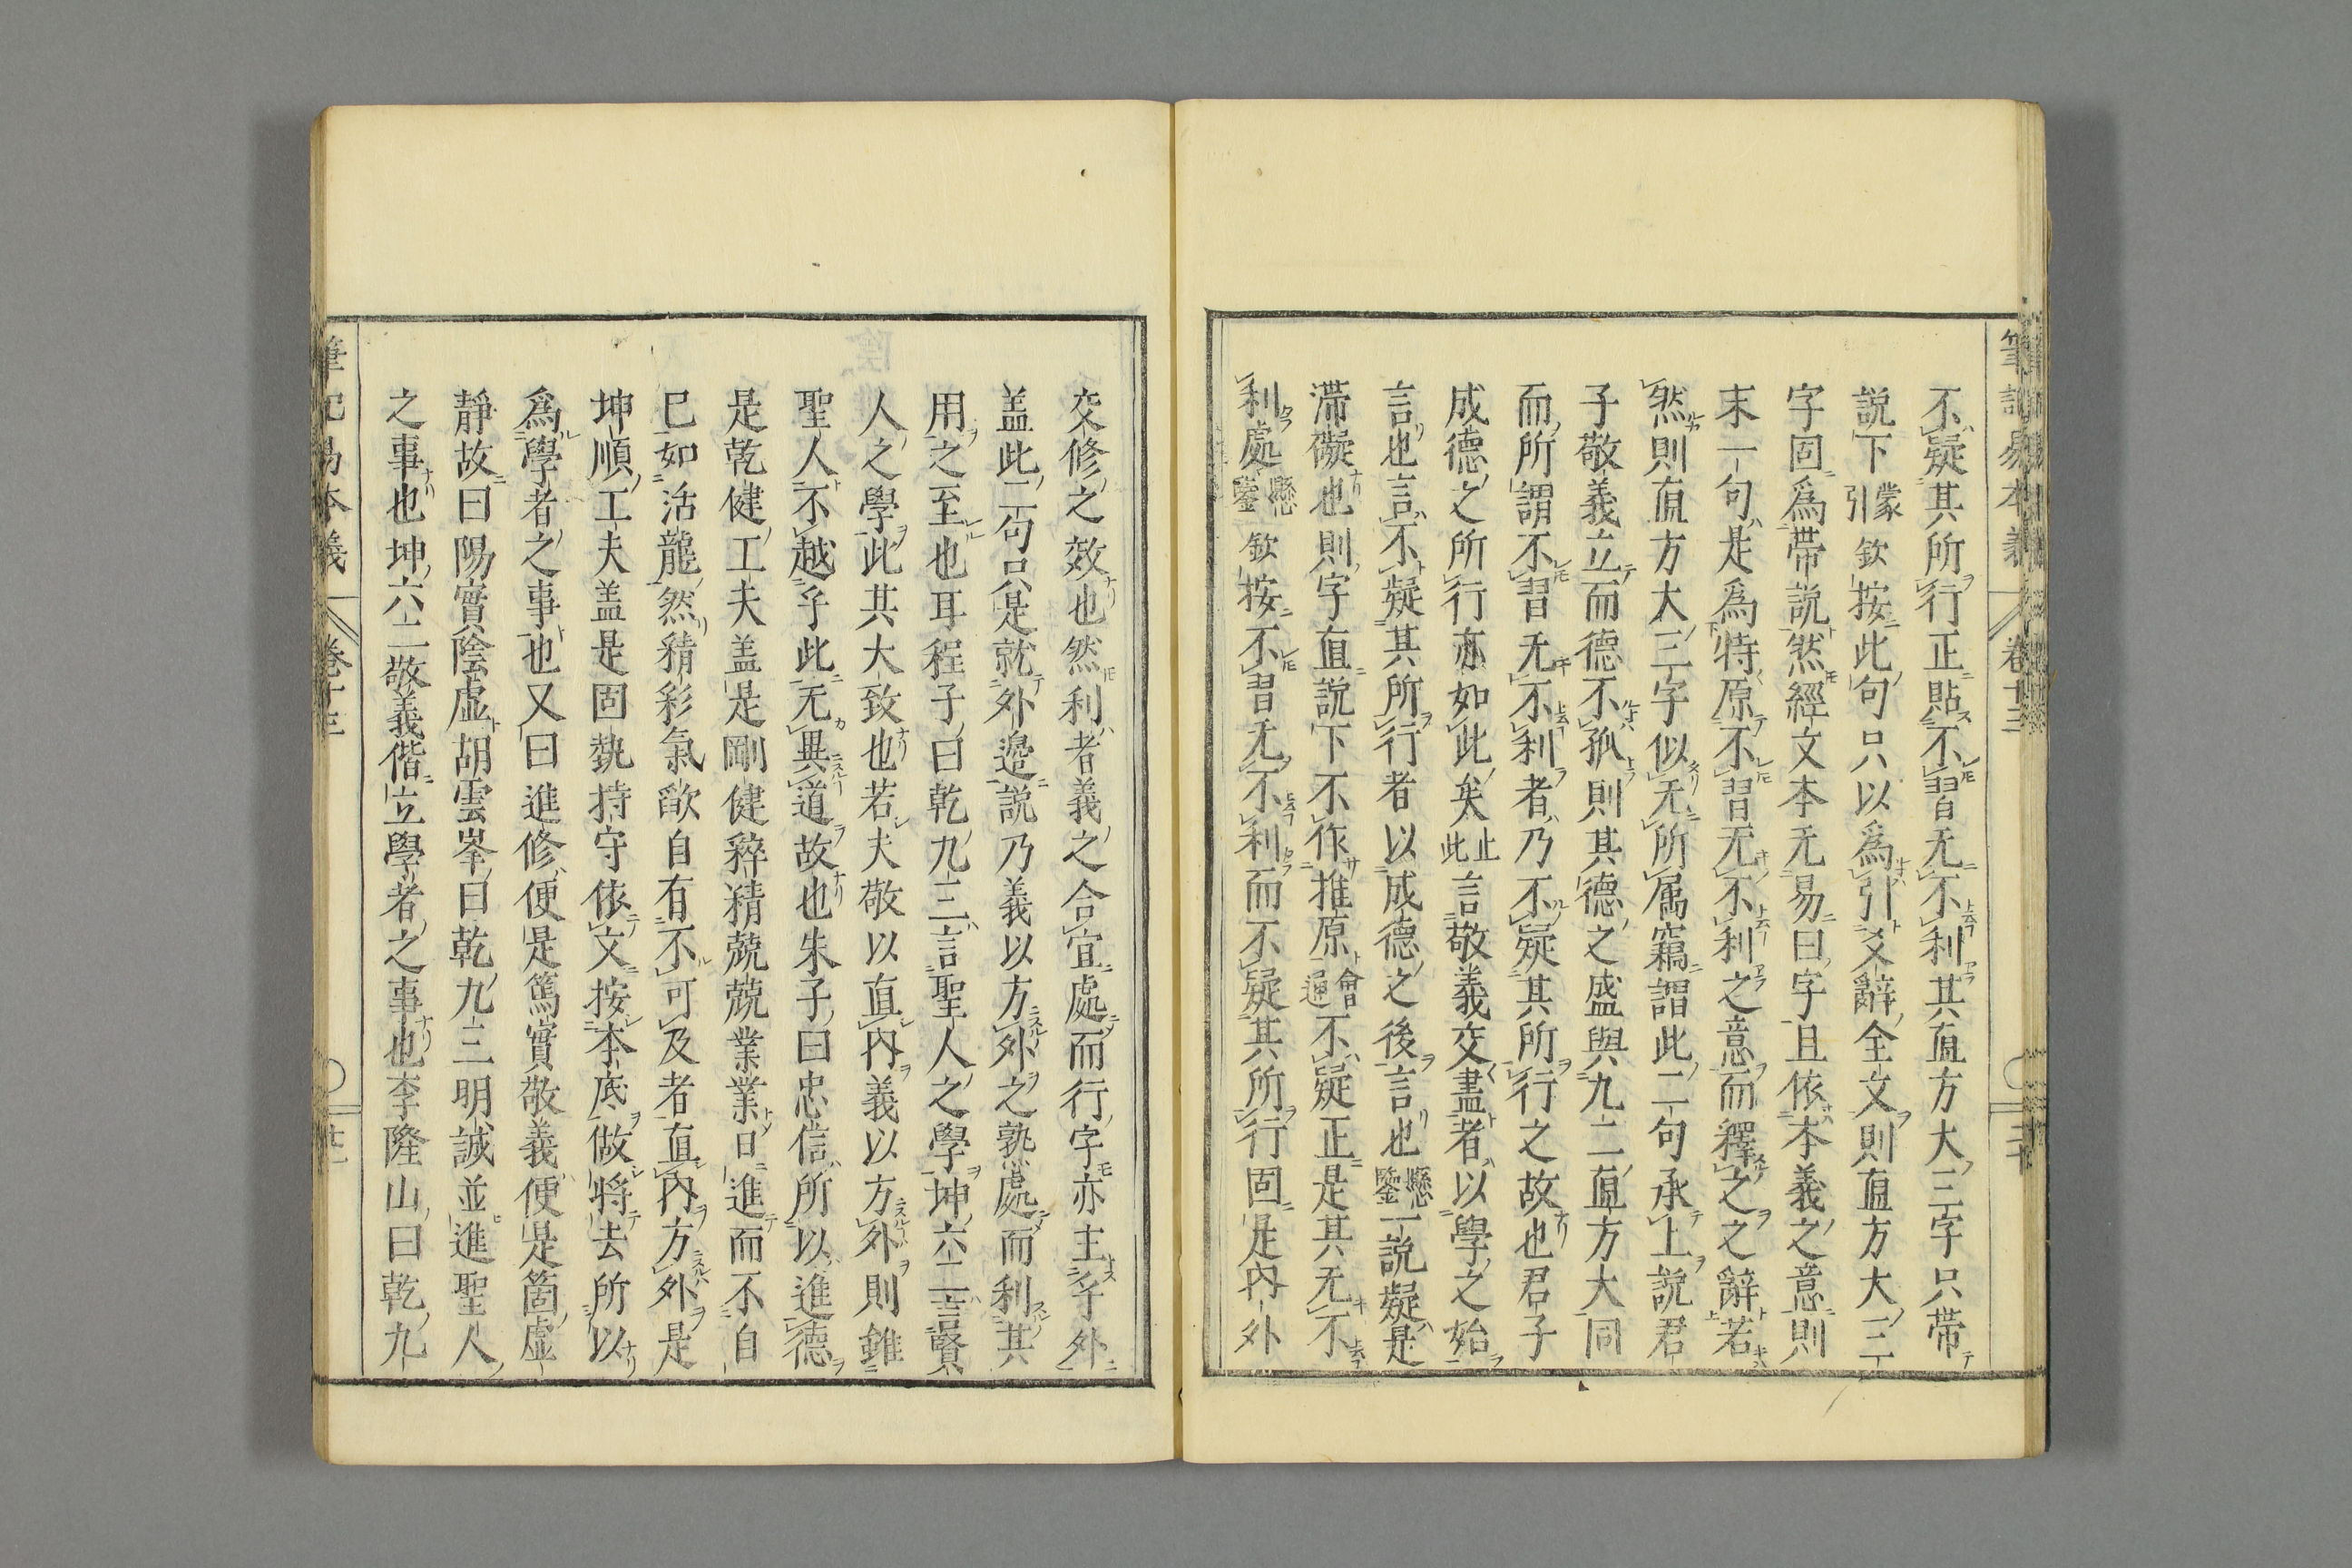 筆記易本義 卷十三 二十
不疑其所行正貼不習无不利其直方大三字只帶
說下蒙引欽按此句只以爲引爻辭全文則直方大三
字固爲帶說然經文本无易曰字且依本義之意則
末一句是爲特原不習无不利之意而釋之之辭若
然則直方大三字似无所属竊謂此二句承上說君
子敬義立而德不孤則其德之盛與九二直方大同
而所謂不習无不利者乃不疑其所行之故也君子
成德之所行亦如此矣止此言敬義交盡者以學之始
言也言不疑其所行者以成德之後言也懸鑒一說疑是
滯礙也則字直說下不作推原會通不疑正是其无不
利處懸鑒欽按不習无不利而不疑其所行固是內外
交修之效也然利者義之合宜處而行字亦主乎外
盖此二句只是就外邉說乃義以方外之熟處而利其
用之至也耳程子曰乾九三言聖人之學坤六二言賢
人之學此其大致也若夫敬以直內義以方外則雖
聖人不越乎此无異道故也朱子曰忠信所以進德
是乾健工夫盖是剛健粹精兢兢業業日進而不自
已如活龍然精彩氣𦦨自有不可及者直內方外是
坤順工夫盖是固執持守依文按本底做將去所以
爲學者之事也又曰進修便是篤實敬義便是箇虛
靜故曰陽實陰虛胡雲峯曰乾九三明誠並進聖人
之事也坤六二敬義偕立學者之事也李隆山曰乾九
筆記易本義 卷十三 廿一